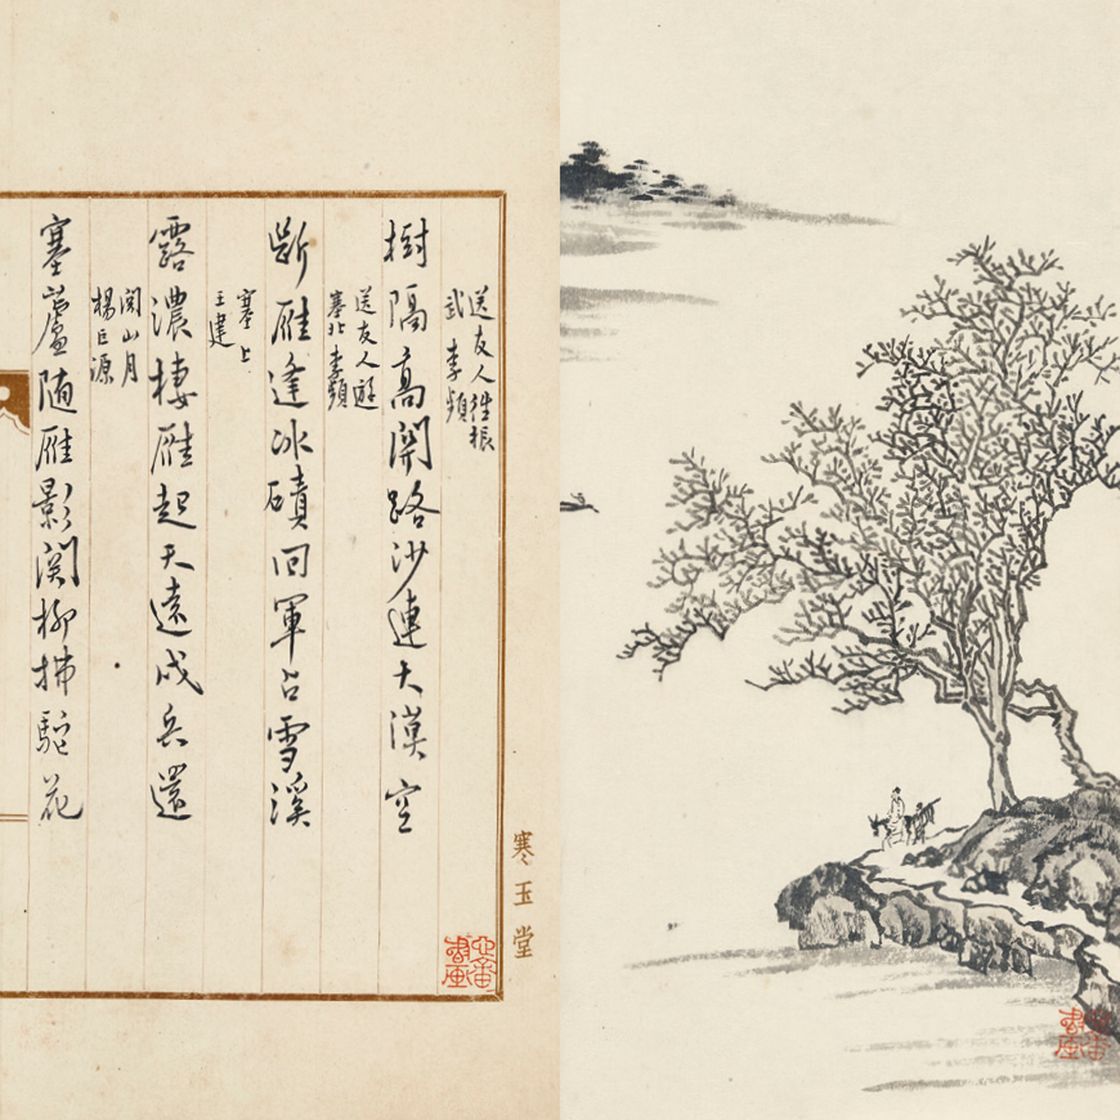 寒玉堂
送友人往振
武 李頻
樹隔高関路沙連大漠空
送友人遊
塞北 李頻
斷雁逢冰磧回軍占雪溪
塞上
王建
露濃棲雁起天遠戍兵還
関山月
楊巨源
塞蘆随雁影関柳拂駝花
心畬書画
心畬書画